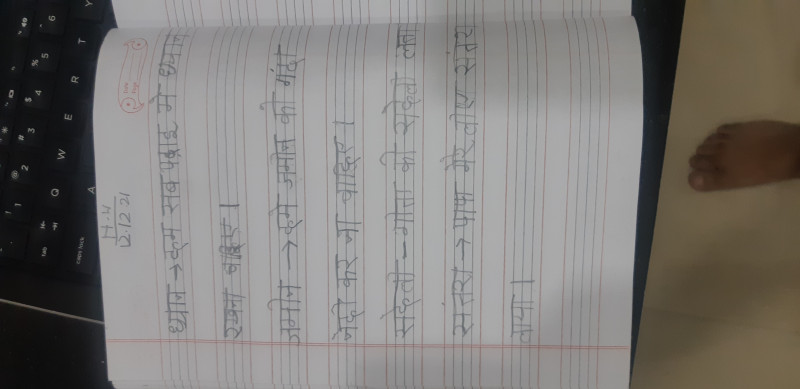 H.W
12.12.21
ध्यान → हम सब पढ़ाई में ध्यान
रखना चाहिए।
जमीन → हमे जमीन को गंदा
नहीं कर ना चाहिए।
सहेली – गीता की सहेली लता
संतरा → पापा मेरे लीए संतरा
लाया।